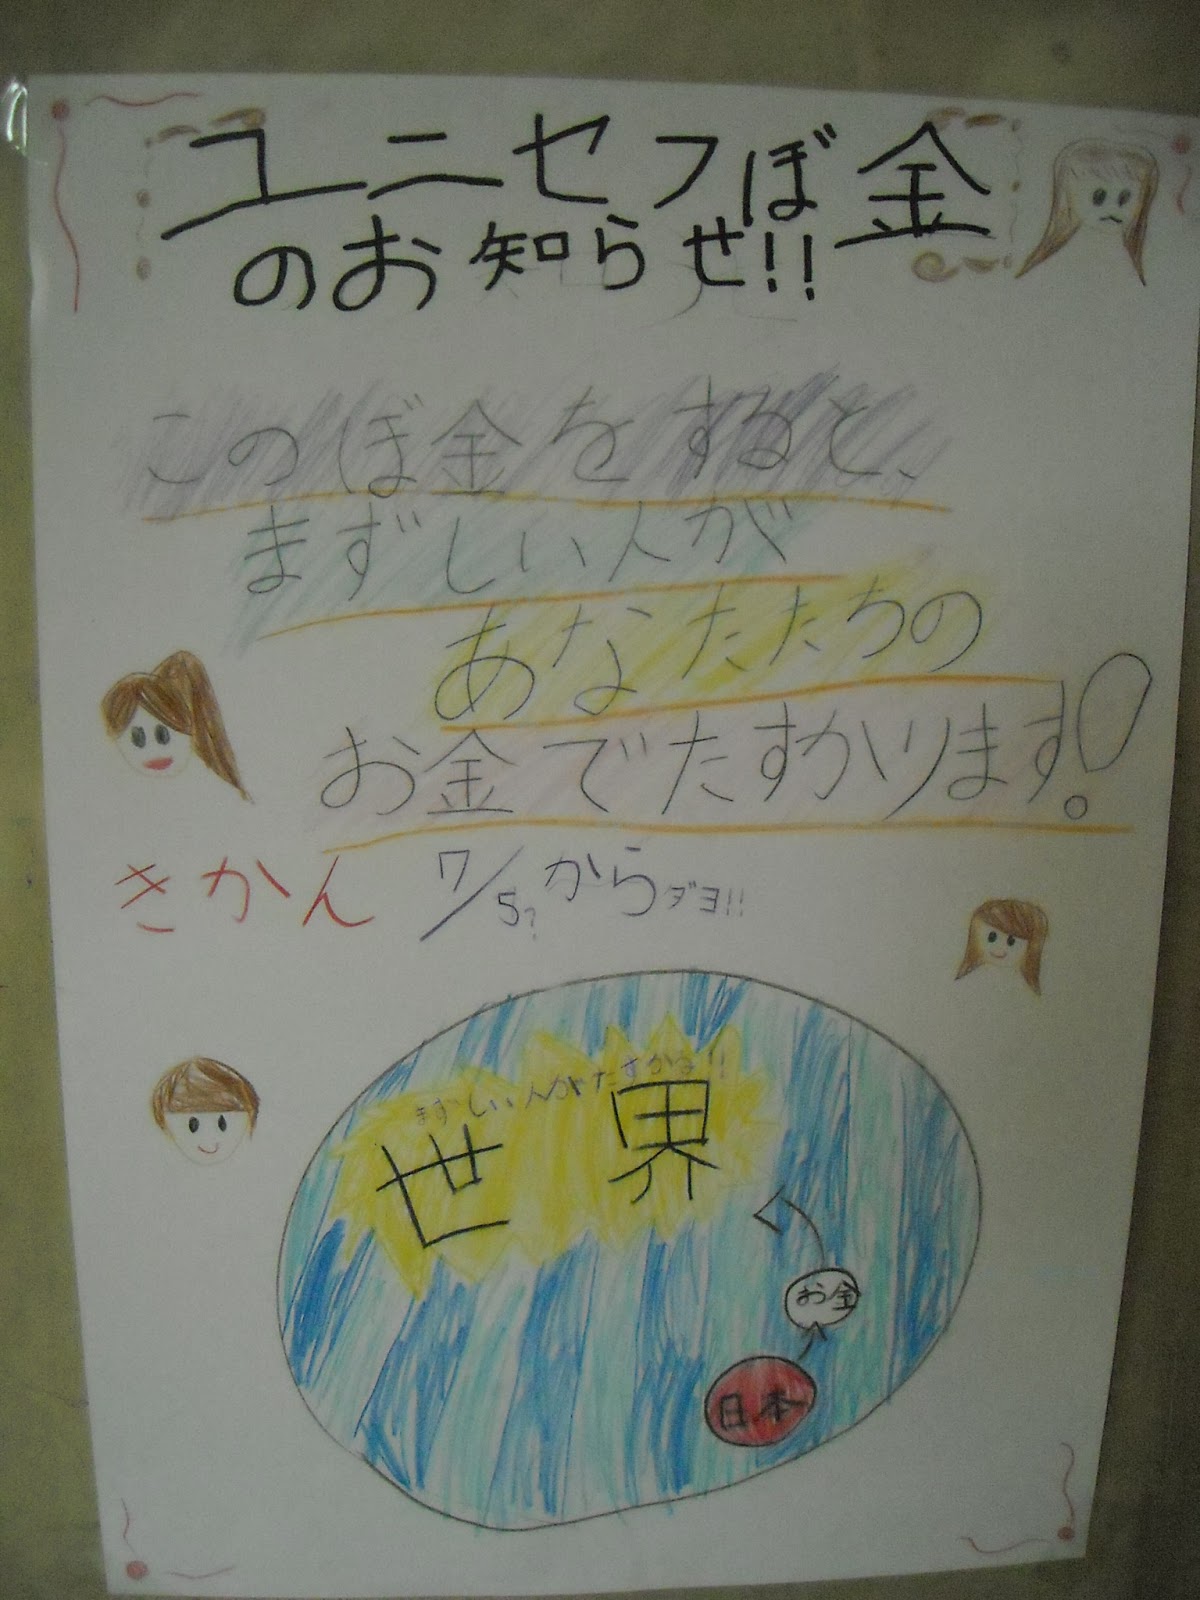 ユニセフぼ金
のお知らせ!!
このぼ金をすると、
まずしい人が
あなたたちの
お金でたすかります!
きかん 7/5?からダヨ!!
まずしい人がたすかる!!
世界
お金
日本